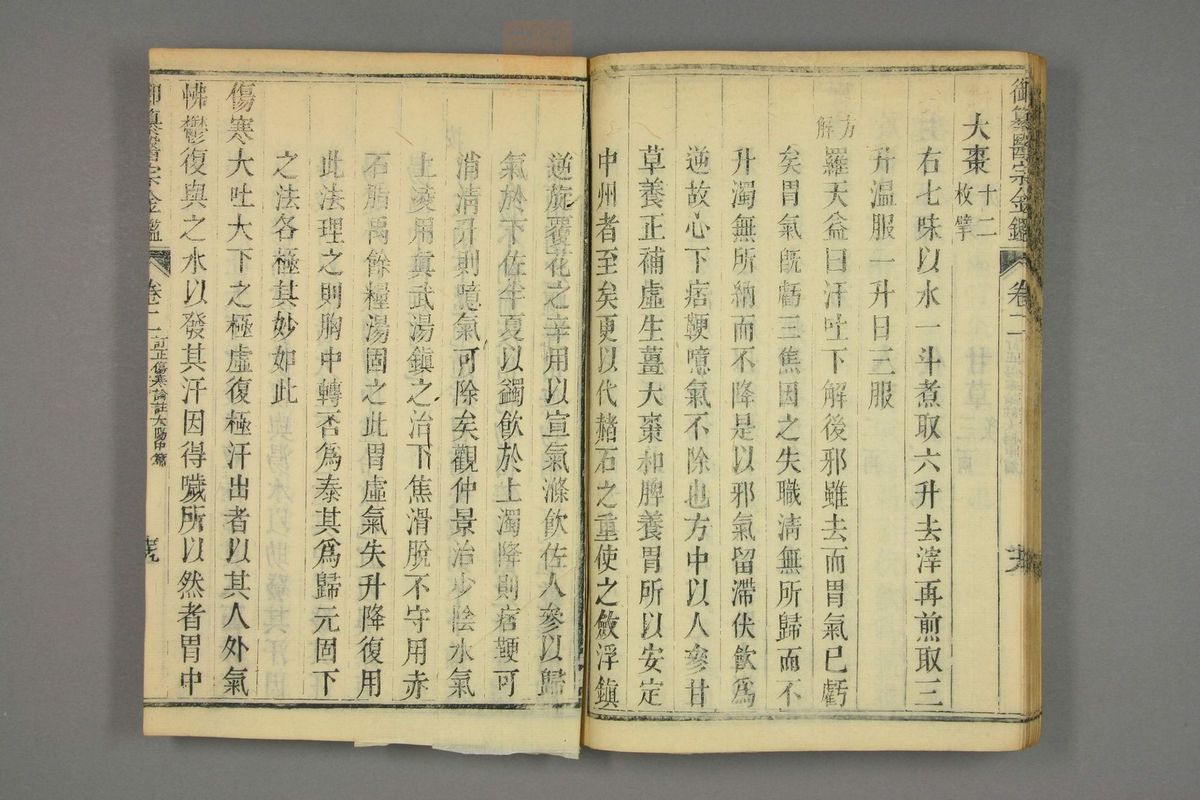 御纂醫宗金鑑 卷二
大棗十二枚擘
右七味以水一斗煮取六升去滓再煎取三
升温服一升日三服
方解
羅天益曰汗吐下解後邪雖去而胃氣已虧
矣胃氣旣虧三焦因之失職清無所歸而不
升濁無所納而不降是以邪氣留滯伏飲爲
逆故心下痞鞕噫氣不除也方中以人參甘
草養正補虛生薑大棗和脾養胃所以安定
中州者至矣更以代赭石之重使之斂浮鎭
逆旋覆花之辛用以宣氣滌飲佐人參以歸
氣於下佐半夏以蠲飲於上濁降則痞鞕可
消清升則噫氣可除矣觀仲景治少陰水氣
上凌用眞武湯鎭之治下焦滑脫不守用赤
石脂禹餘糧湯固之此胃虛氣失升降復用
此法理之則胸中轉否爲泰其爲歸元固下
之法各極其妙如此
傷寒大吐大下之極虛復極汗出者以其人外氣
怫鬱復與之水以發其汗因得噦所以然者胃中
御纂醫宗金鑑 卷二 訂正傷寒論註太陽中篇